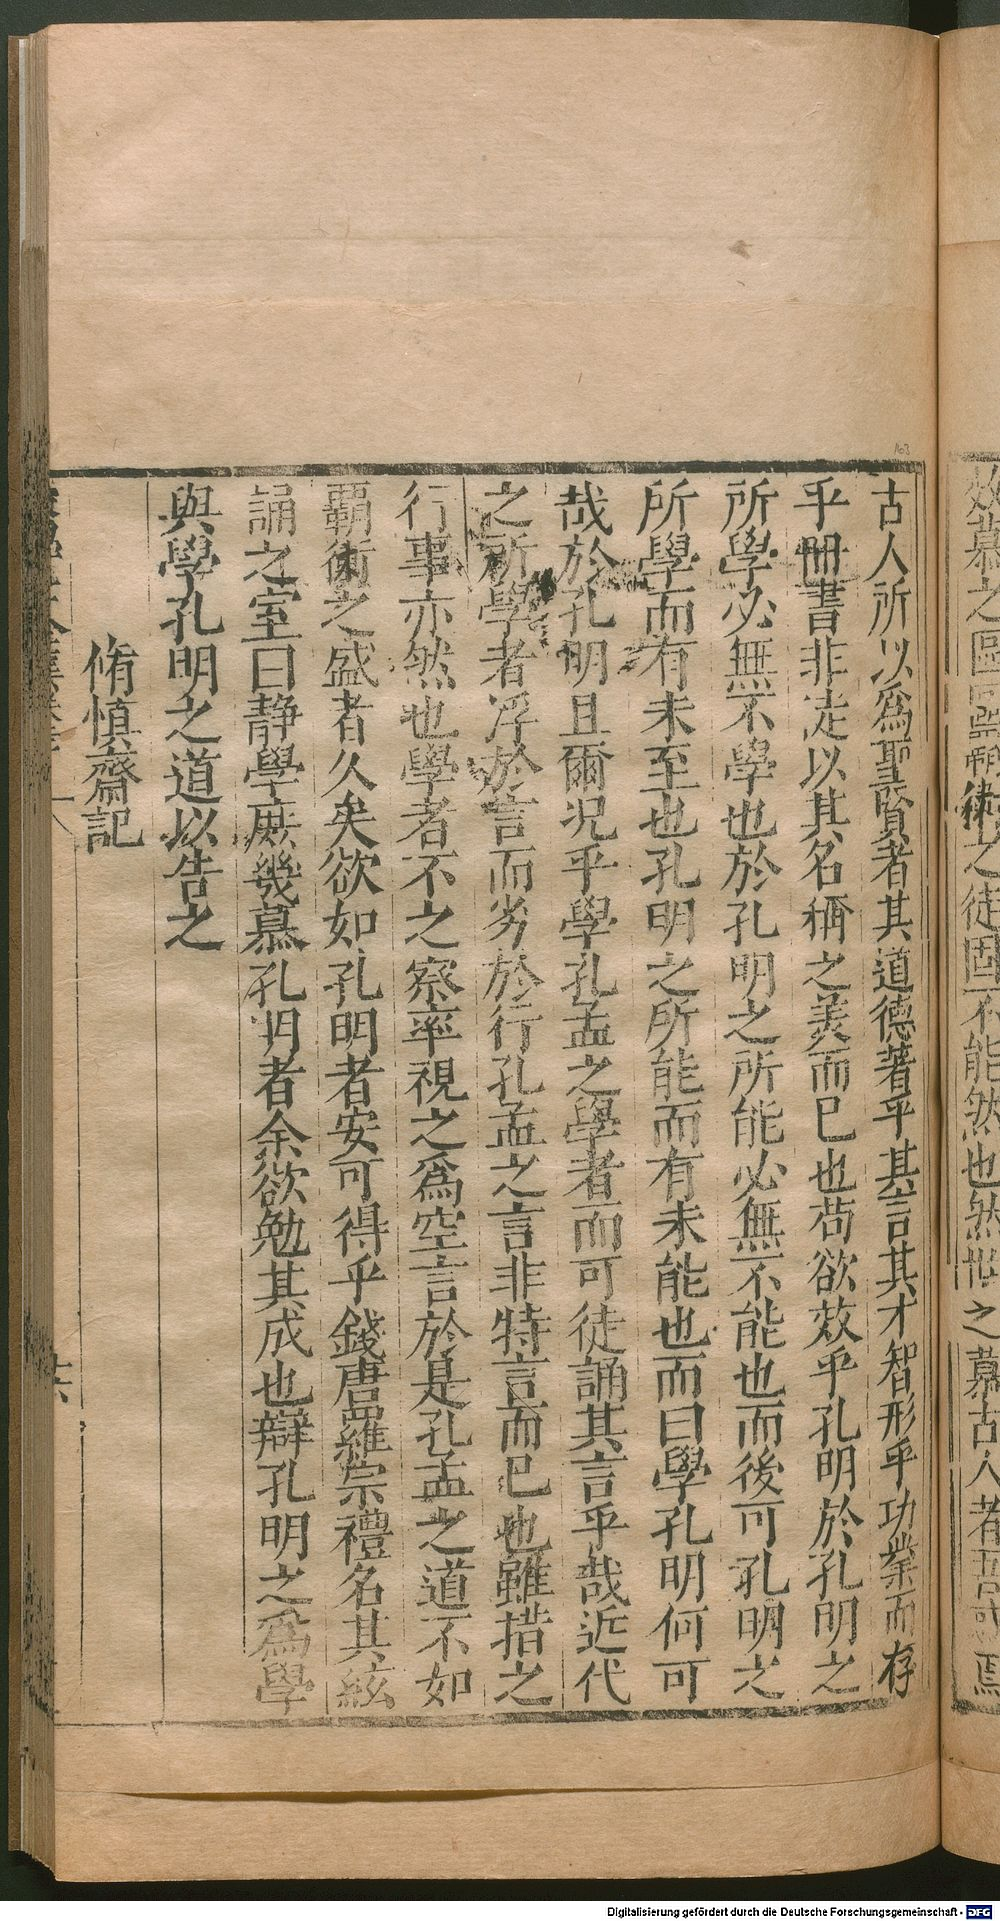 效慕之區區霸術之徒固不能然也然世之慕古人者吾惑焉
古人所以爲聖賢者其道德著乎其言其才智形乎功業而存
乎冊書非徒以其名稱之美而已也苟欲效乎孔明於孔明之
所學必無不學也於孔明之所能必無不能也而後可孔明之
所學而有未至也孔明之所能而有未能也而曰學孔明何可
哉於孔明且爾況乎學孔孟之學者而可徒誦其言乎哉近代
之所學者浮於言而劣於行孔孟之言非特言而已也雖措之
行事亦然也學者不之察率視之爲空言於是孔孟之道不如
霸術之盛者久矣欲如孔明者安可得乎錢唐羅宗禮名其絃
誦之室曰靜學庶幾慕孔明者余欲勉其成也辯孔明之爲學
與學孔明之道以告之
脩慎齋記
十六
163
Digitalisierung gefördert durch die Deutsche Forschungsgemeinschaft - DFG